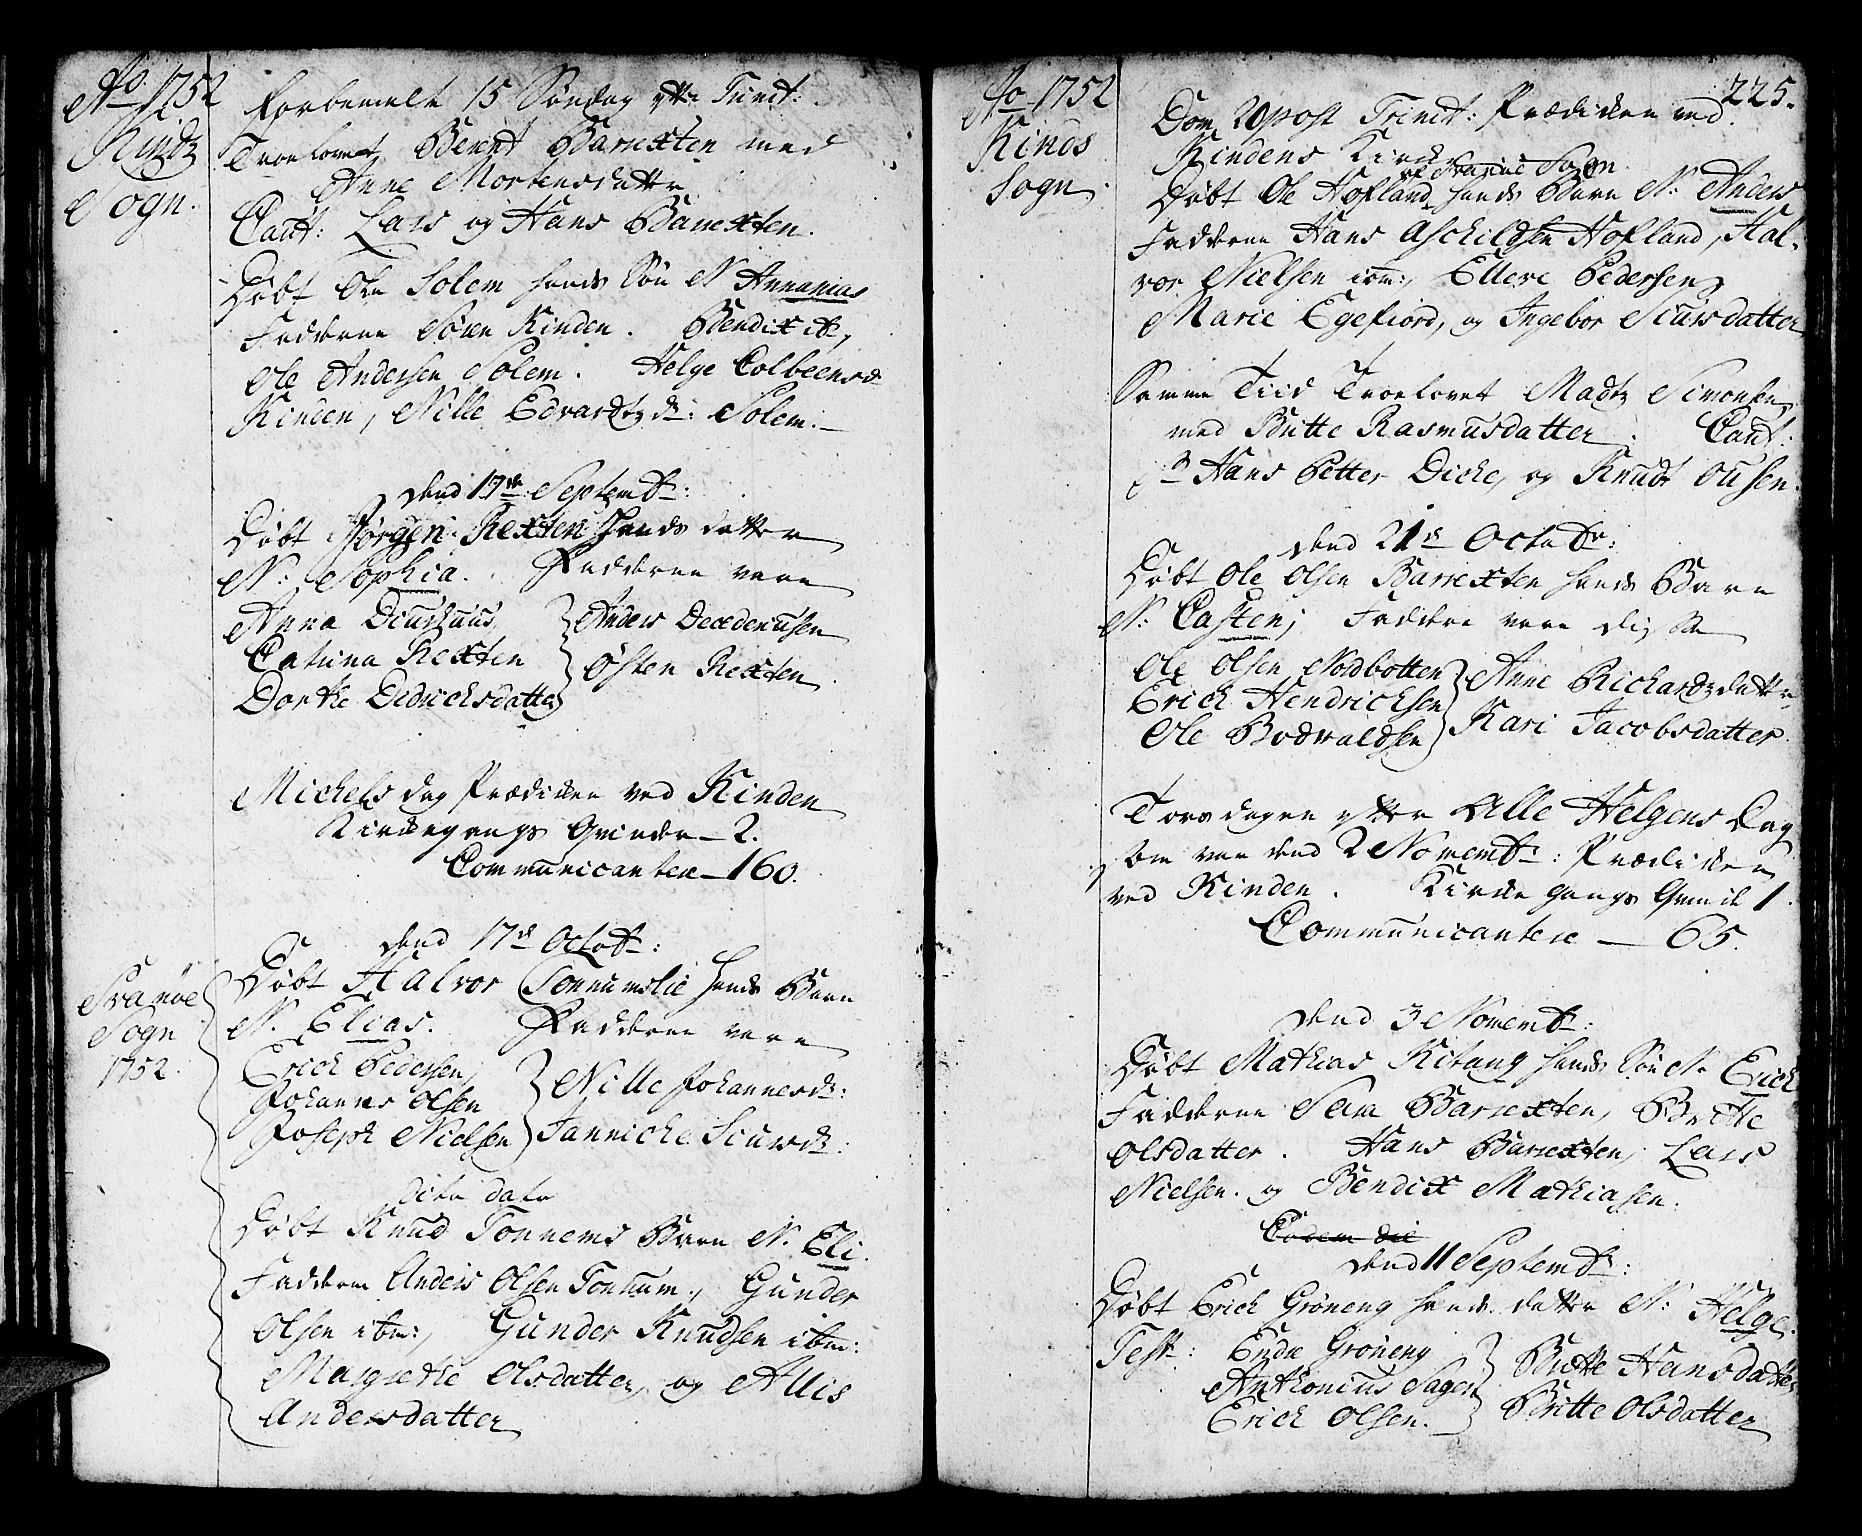 Ao 1752
Kinds
Sogn.
Forbemelte 15 Søndag efter Trinit:
Troelovet Berent Barrexten med
Anne Mortensdatter
Caut: Lars og Hans Barrexten.
Døbt Ole Solem hands Søn N Annanias
Fadderne Søren Kinden. Bendix ib,
Ole Andersen Solem. Helge Colbeensd
Kinden, Nille Edvardtzd: Solem.
dend 17de Septembr:
Døbt Jørgen Rexten hands datter
N: Sophia. Fadderne vare
Anna Diurhuus
Catrina Rexten
Dorthe Didrichsdatter
Anders Decedenusen
Østen Rexten
Michels dag Prædiken ved Kinden
Kirkegangs Qvinder 2.
Communicantere 160.
Svanøe
Sogn
1752.
dend 17d Octobr:
Døbt Halvor Tonnumslie hands Barn
N. Elias. Fadderne vare
Erich Pedersen,
Johannes Olsen
Joseph Nielsen
Nille Johannesd:
Jannicke Siursd:
dito dato
Døbt Knud Tonnems Barn N. Eli.
Fadderne Anders Olsen Tonnum, Gunder
Olsen ibm:, Gunder Knudsen ibm:
Margrethe Olsdatter, og Allis
Andersdatter
Ao 1752
Kinds
Sogn.
225.
Dom 20 post Trinit: Prædiken ved
Kindens Kirke
af Svanøe Sogn
Døbt Ole Hofland hands Barn N: Anders
Fadderne Hans Aschildsen Hofland, Hal-
vor Nielsen ibm:, Ellert Pedersen,
Marie Egefiord, og Ingebor Siursdatter
Samme Tiid Troelovet Madtz Simonsen
med Britte Rasmusdatter. Caut:
Hans Petter Dicke, og Knudt Ousen.
dend 21d Octobr:
Døbt Ole Olsen Barrexten hands Barn
N. Casten; Faddere vare disse
Ole Olsen Nordbotten
Erich Hendrichsen
Ole Bodvaldsen
Anne Richardtzdatter
Kari Jacobsdatter
Torsdagen efter Alle Helgens Dag
som var dend 2 Novembr: Prædiken
ved Kinden. Kirkegangs Qvinde 1.
Communicantere 65.
dend 3 Novembr:
Døbt Mathias Kibang hands Søn N. Erich
Fadderne Barrexten, Britte
Olsdatter. Hans Barrexten, Lars
Nielsen. og Bendix Mathiasen.
Eodem die
dend 11 Septembr:
Døbt Erich Grøneng hands datter N: Helge.
Test: Endre Grøneng
Anthonius Sagen
Erich Olsen.
Britte Hansdatter
Britte Olsdatter